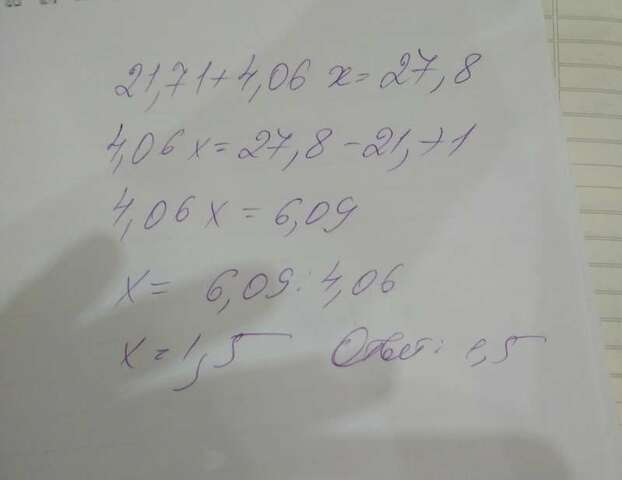 21,71+4,06 x = 27,8
4,06 x = 27,8 - 21,71
4,06 x = 6,09
x = 6,09 : 4,06
x = 1,5 Ответ: 1,5